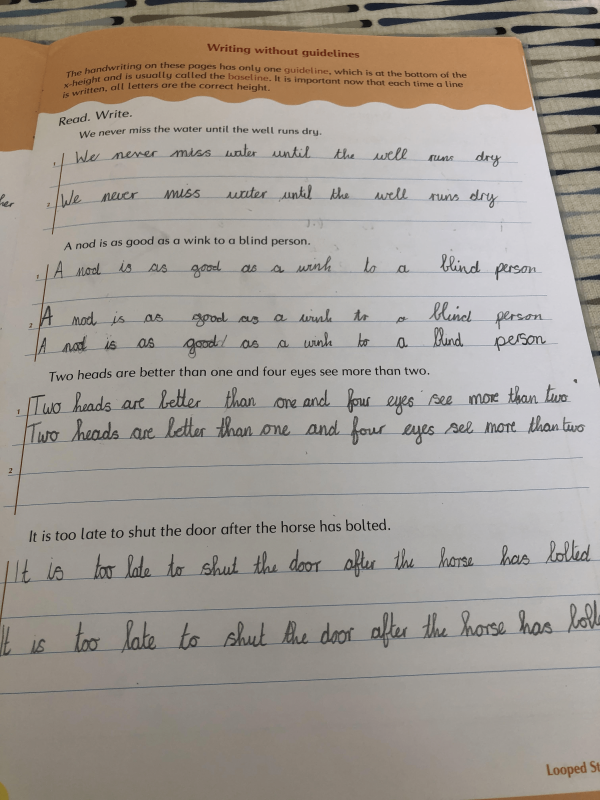 Writing without guidelines
The handwriting on these pages has only one guideline, which is at the bottom of the
x-height and is usually called the baseline. It is important now that each time a line
is written, all letters are the correct height.
Read. Write.
We never miss the water until the well runs dry.
1 We never miss water until the well runs dry
her
2 We never miss water until the well runs dry
A nod is as good as a wink to a blind person.
1 A nod is as good as a wink to a blind person
2 A nod is as good as a wink to a blind person
A nod is as good as a wink to a blind person
Two heads are better than one and four eyes see more than two.
1 Two heads are better than one and four eyes see more than two.
Two heads are better than one and four eyes see more than two
2
It is too late to shut the door after the horse has bolted.
It is too late to shut the door after the horse has bolted
It is too late to shut the door after the horse has
Looped